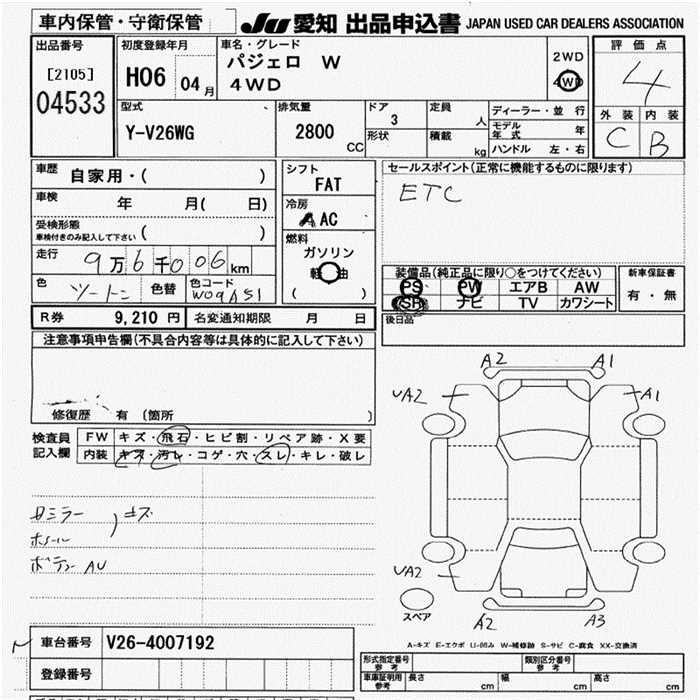 車内保管・守衛保管
JU 愛知 出品申込書 JAPAN USED CAR DEALERS ASSOCIATION
出品番号
[2105]
04533
初度登録年月
H06 04 月
車名・グレード
パジェロ W
4WD
2WD
4WD
評価点
4
外装 内装
C B
型式
Y-V26WG
排気量
2800
CC
ドア
3
形状
定員
人
積載
kg
ディーラー・並行
モデル年式 年
ハンドル 左・右
車歴 自家用・( )
車検 年 月( 日)
受検形態
車検付きのみ記入して下さい ( )
走行 9万6千006km
色 ツートン 色替 色コード
W09A51
シフト
FAT
冷房
AAC
燃料
ガソリン
軽油
( )
セールスポイント(正常に機能するものに限ります)
ETC
装備品(純正品に限り○をつけてください)
PS PW エアB AW
SR ナビ TV カワシート
新車保証書
有・無
後日品
R券 9,210 円 名変通知期限 月 日
注意事項申告欄(不具合内容等は具体的に記入して下さい)
修復歴 有 (箇所 )
検査員
記入欄
FW キズ・飛石・ヒビ割・リペア跡・X要
内装 キズ・汚レ・コゲ・穴・スレ・キレ・破レ
ミラー
ホイール
キズ
ボディー AU
A2 A1
UA2 A1
UA2
スペア
A2 A3
A-キズ E-エクボ U-凹み W-補修跡 S-サビ C-腐食 XX-交換済
車台番号 V26-4007192
登録番号
形式指定番号
参考
類別区分番号
参考
車庫証明用
参考
長さ cm 幅 cm 高さ cm